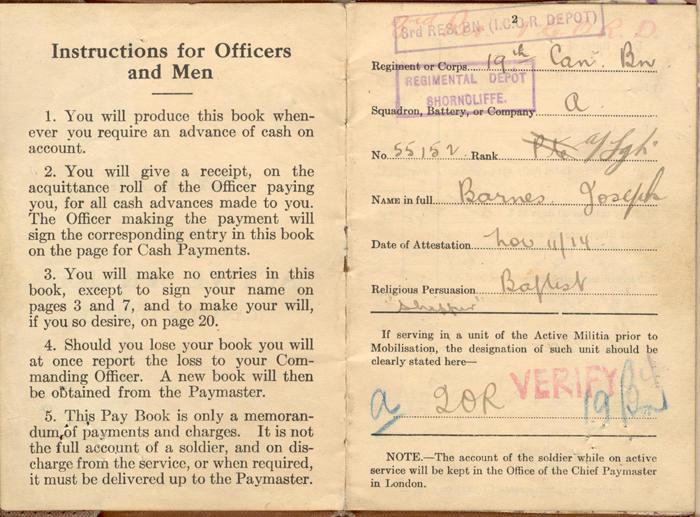 Instructions for Officers
and Men
1. You will produce this book when-
ever you require an advance of cash on
account.
2. You will give a receipt, on the
acquittance roll of the Officer paying
you, for all cash advances made to you.
The Officer making the payment will
sign the corresponding entry in this book
on the page for Cash Payments.
3. You will make no entries in this
book, except to sign your name on
pages 3 and 7, and to make your will,
if you so desire, on page 20.
4. Should you lose your book you will
at once report the loss to your Com-
manding Officer. A new book will then
be obtained from the Paymaster.
5. This Pay Book is only a memoran-
dum of payments and charges. It is not
the full account of a soldier, and on dis-
charge from the service, or when required,
it must be delivered up to the Paymaster.
2
3rd RES. BN. (I.C.O.R. DEPOT)
Regiment or Corps 19th Can. Bn
REGIMENTAL DEPOT
SHORNCLIFFE.
Squadron, Battery, or Company A
No. 55152 Rank Pte
NAME in full Barnes Joseph
Date of Attestation Nov 11/14
Religious Persuasion Baptist
"Shipper"
If serving in a unit of the Active Militia prior to
Mobilisation, the designation of such unit should be
clearly stated here—
a QOR VERIFY 19 Bn
NOTE.—The account of the soldier while on active
service will be kept in the Office of the Chief Paymaster
in London.